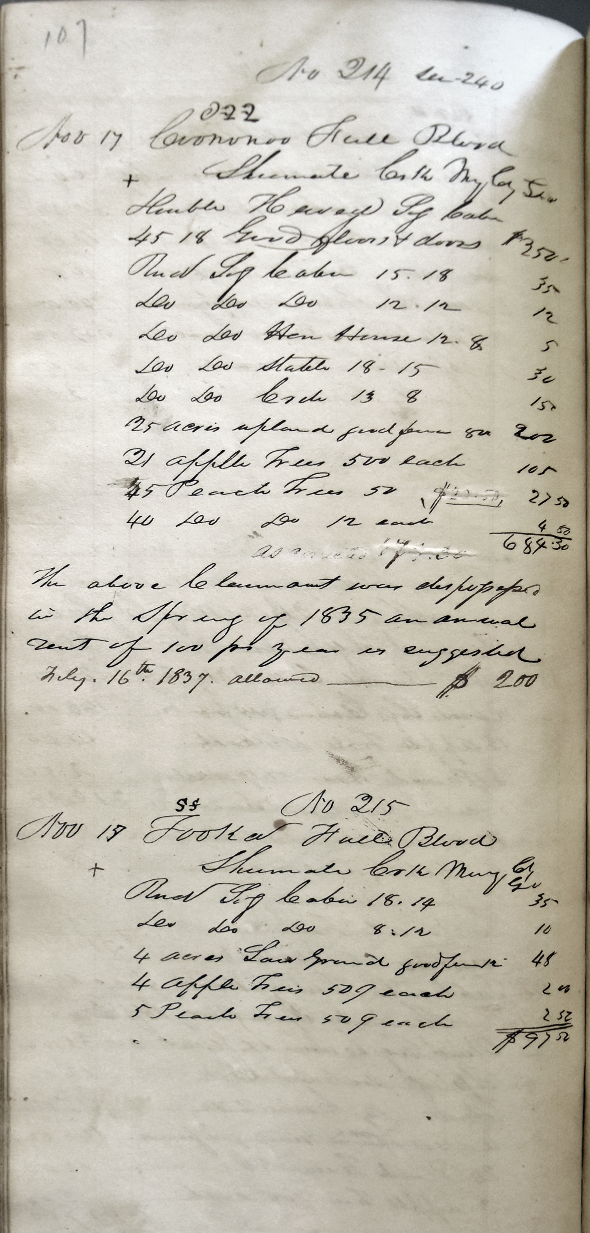 107
No 214 see 240
Nov 17 Full Blood
+ Shumate Crk
Double Hewed Log Cabin
45 18 Good floors & doors $350
Rud Log Cabin 15.18 35
Do Do Do 12.12 12
Do Do Hen House 12.8 5
Do Do Stable 18-15 30
Do Do Crib 13 8 15
25 acres upland good 200
21 apple Trees 500 each 105
45 Peach Trees 50 27 50
40 Do Do 12 each 4 50
684.50
The above Claimant was dispossessed
in the Spring of 1835 an annual
rent of 100 pr year is suggested
Feby. 16th 1837. allowed $ 200
No 215
Nov 17 Full Blood
+ Shumate Crk
Rud Log Cabin 18.14 35
Do Do Do 8.12 10
4 acres Low Ground 48
4 apple Trees 50 each 2 00
5 Peach Trees 50 each 2 50
$97 50